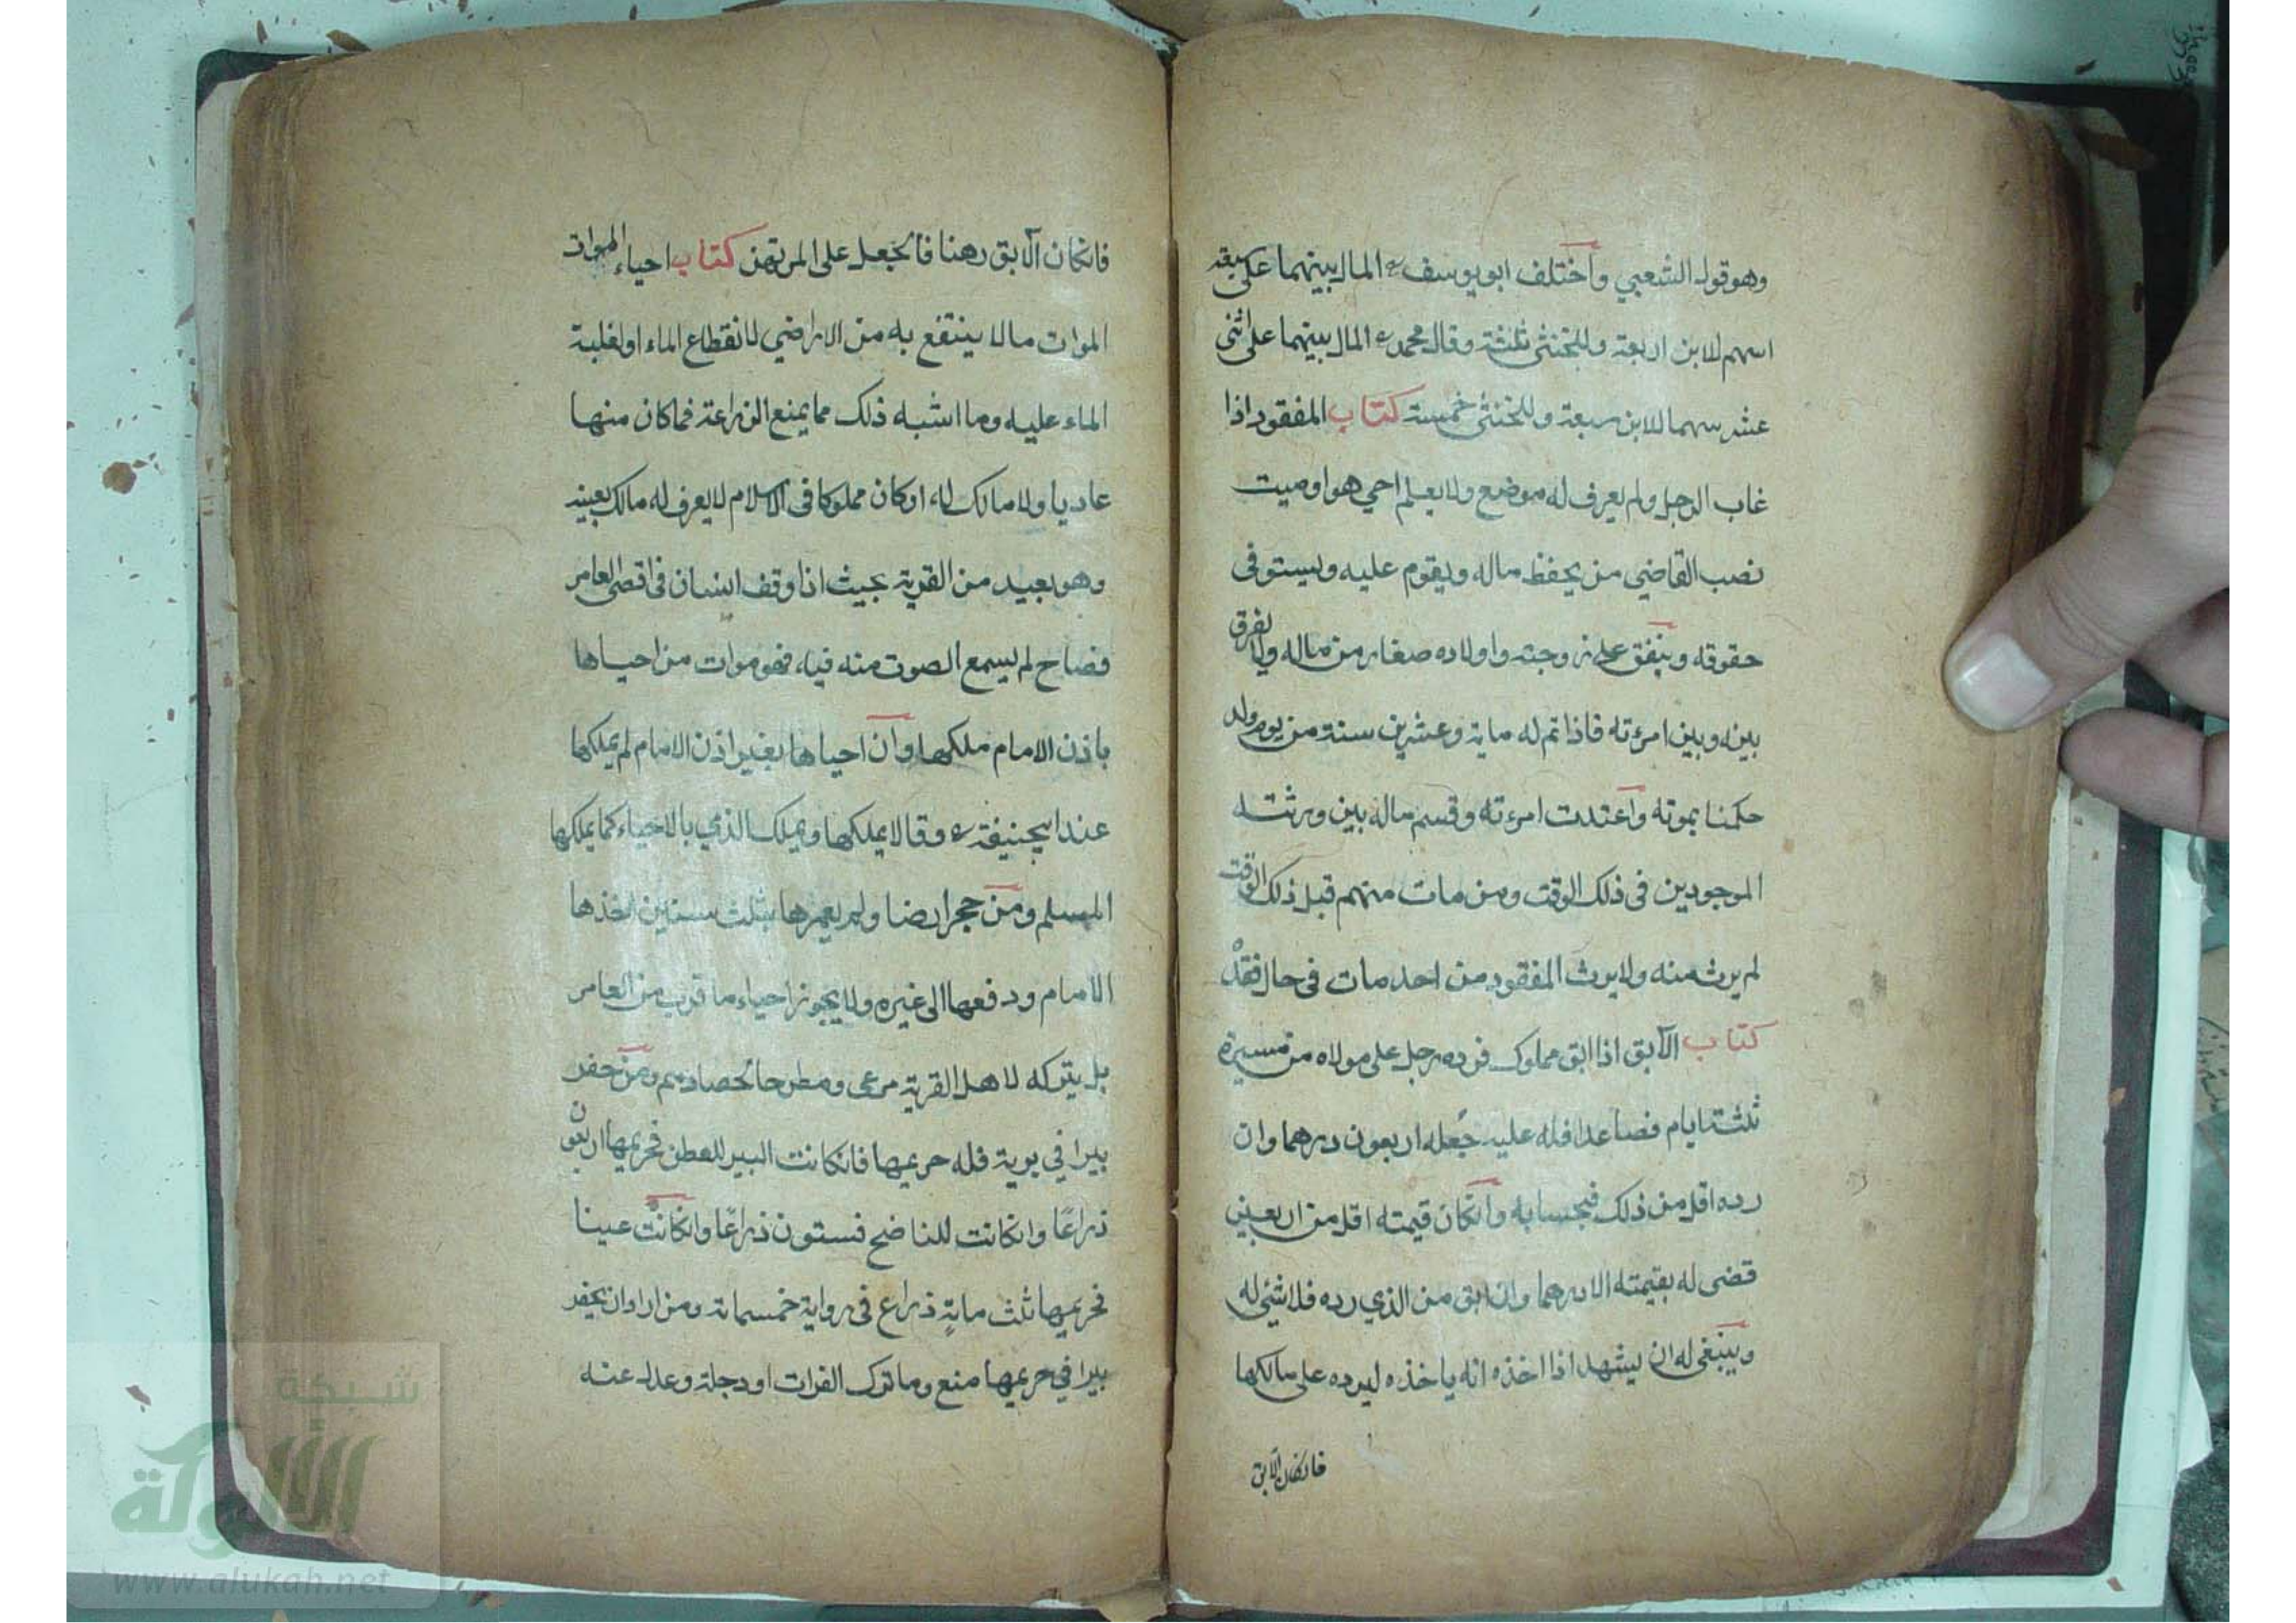 وهو قول الشعبي واختلف ابو يوسف رح المال بينهما على سبعة
اسهم للابن اربعة وللخنثى ثلثة وقال محمد رح المال بينهما على اثنى
عشر سهما للابن سبعة وللخنثى خمسة كتاب المفقود اذا
غاب الرجل ولم يعرف له موضع ولا يعلم احي هو او ميت
نصب القاضي من يحفظ ماله ويقوم عليه ويستوفى
حقوقه وينفق على زوجته واولاده صغار من ماله ولا يفرق
بينه وبين امرءته فاذا تم له ماية وعشرين سنة من يوم ولد
حكمنا بموته واعتدت امرءته وقسم ماله بين ورثته
الموجودين فى ذلك الوقت ومن مات منهم قبل ذلك الوقت
لم يرث منه ولا يرث المفقود من احد مات فى حال فقده
كتاب الآبق اذا ابق مملوك فرده رجل على مولاه من مسيرة
ثلثة ايام فصاعدا فله عليه جعله اربعون درهما وان
رده اقل من ذلك فبحسابه وانكان قيمته اقل من اربعين
قضى له بقيمته الا درهما وان ابق من الذي رده فلا شئ له
وينبغى له ان يشهد اذا اخذه انه ياخذه ليرده على مالكها
فانكان الآبق
فانكان الآبق رهنا فالجعل على المرتهن كتاب احياء الموات
الموات ما لا ينتفع به من الاراضي لانقطاع الماء او لغلبة
الماء عليه وما اشبه ذلك مما يمنع الزراعة فما كان منها
عاديا ولا مالك له او كان مملوكا فى الاسلام لا يعرف له مالك بعينه
وهو بعيد من القرية بحيث اذا وقف انسان فى اقصى العامر
فصاح لم يسمع الصوت منه فيه فهو موات من احياها
باذن الامام ملكها وان احياها بغير اذن الامام لم يملكها
عند ابيحنيفة رح وقالا يملكها ويملك الذمي بالاحياء كما يملكها
المسلم ومن حجر ارضا ولم يعمرها بثلث سنين اخذها
الامام ودفعها الى غيره ولا يجوز احياء ما قرب من العامر
بل يتركه لاهل القرية مرعى ومطرحا لحصادهم ومن حفر
بيرا في برية فله حريمها فانكانت البير للعطن فحريمها اربعون
ذراعا وانكانت للناضح فستون ذراعا وانكانت عينا
فحريمها ثلث ماية ذراع فى رواية خمسماية ومن اراد ان يحفر
بيرا في حريمها منع وما ترك الفرات او دجلة وعدل عنه
شبكة
الألوكة
www.alukah.net